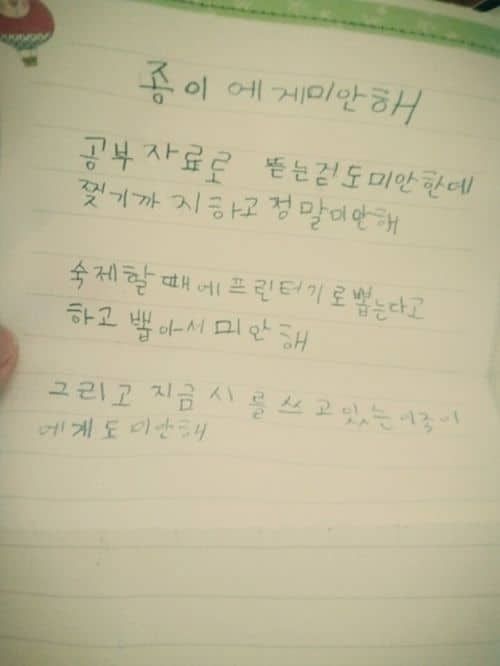 종이에게미안해
공부자료로 뜯는걷도미안한데
찢기까지하고정말미안해
숙제할때에프린터기로뽑는다고
하고뽑아서미안해
그리고 지금시를쓰고있는이종이
에게도미안해